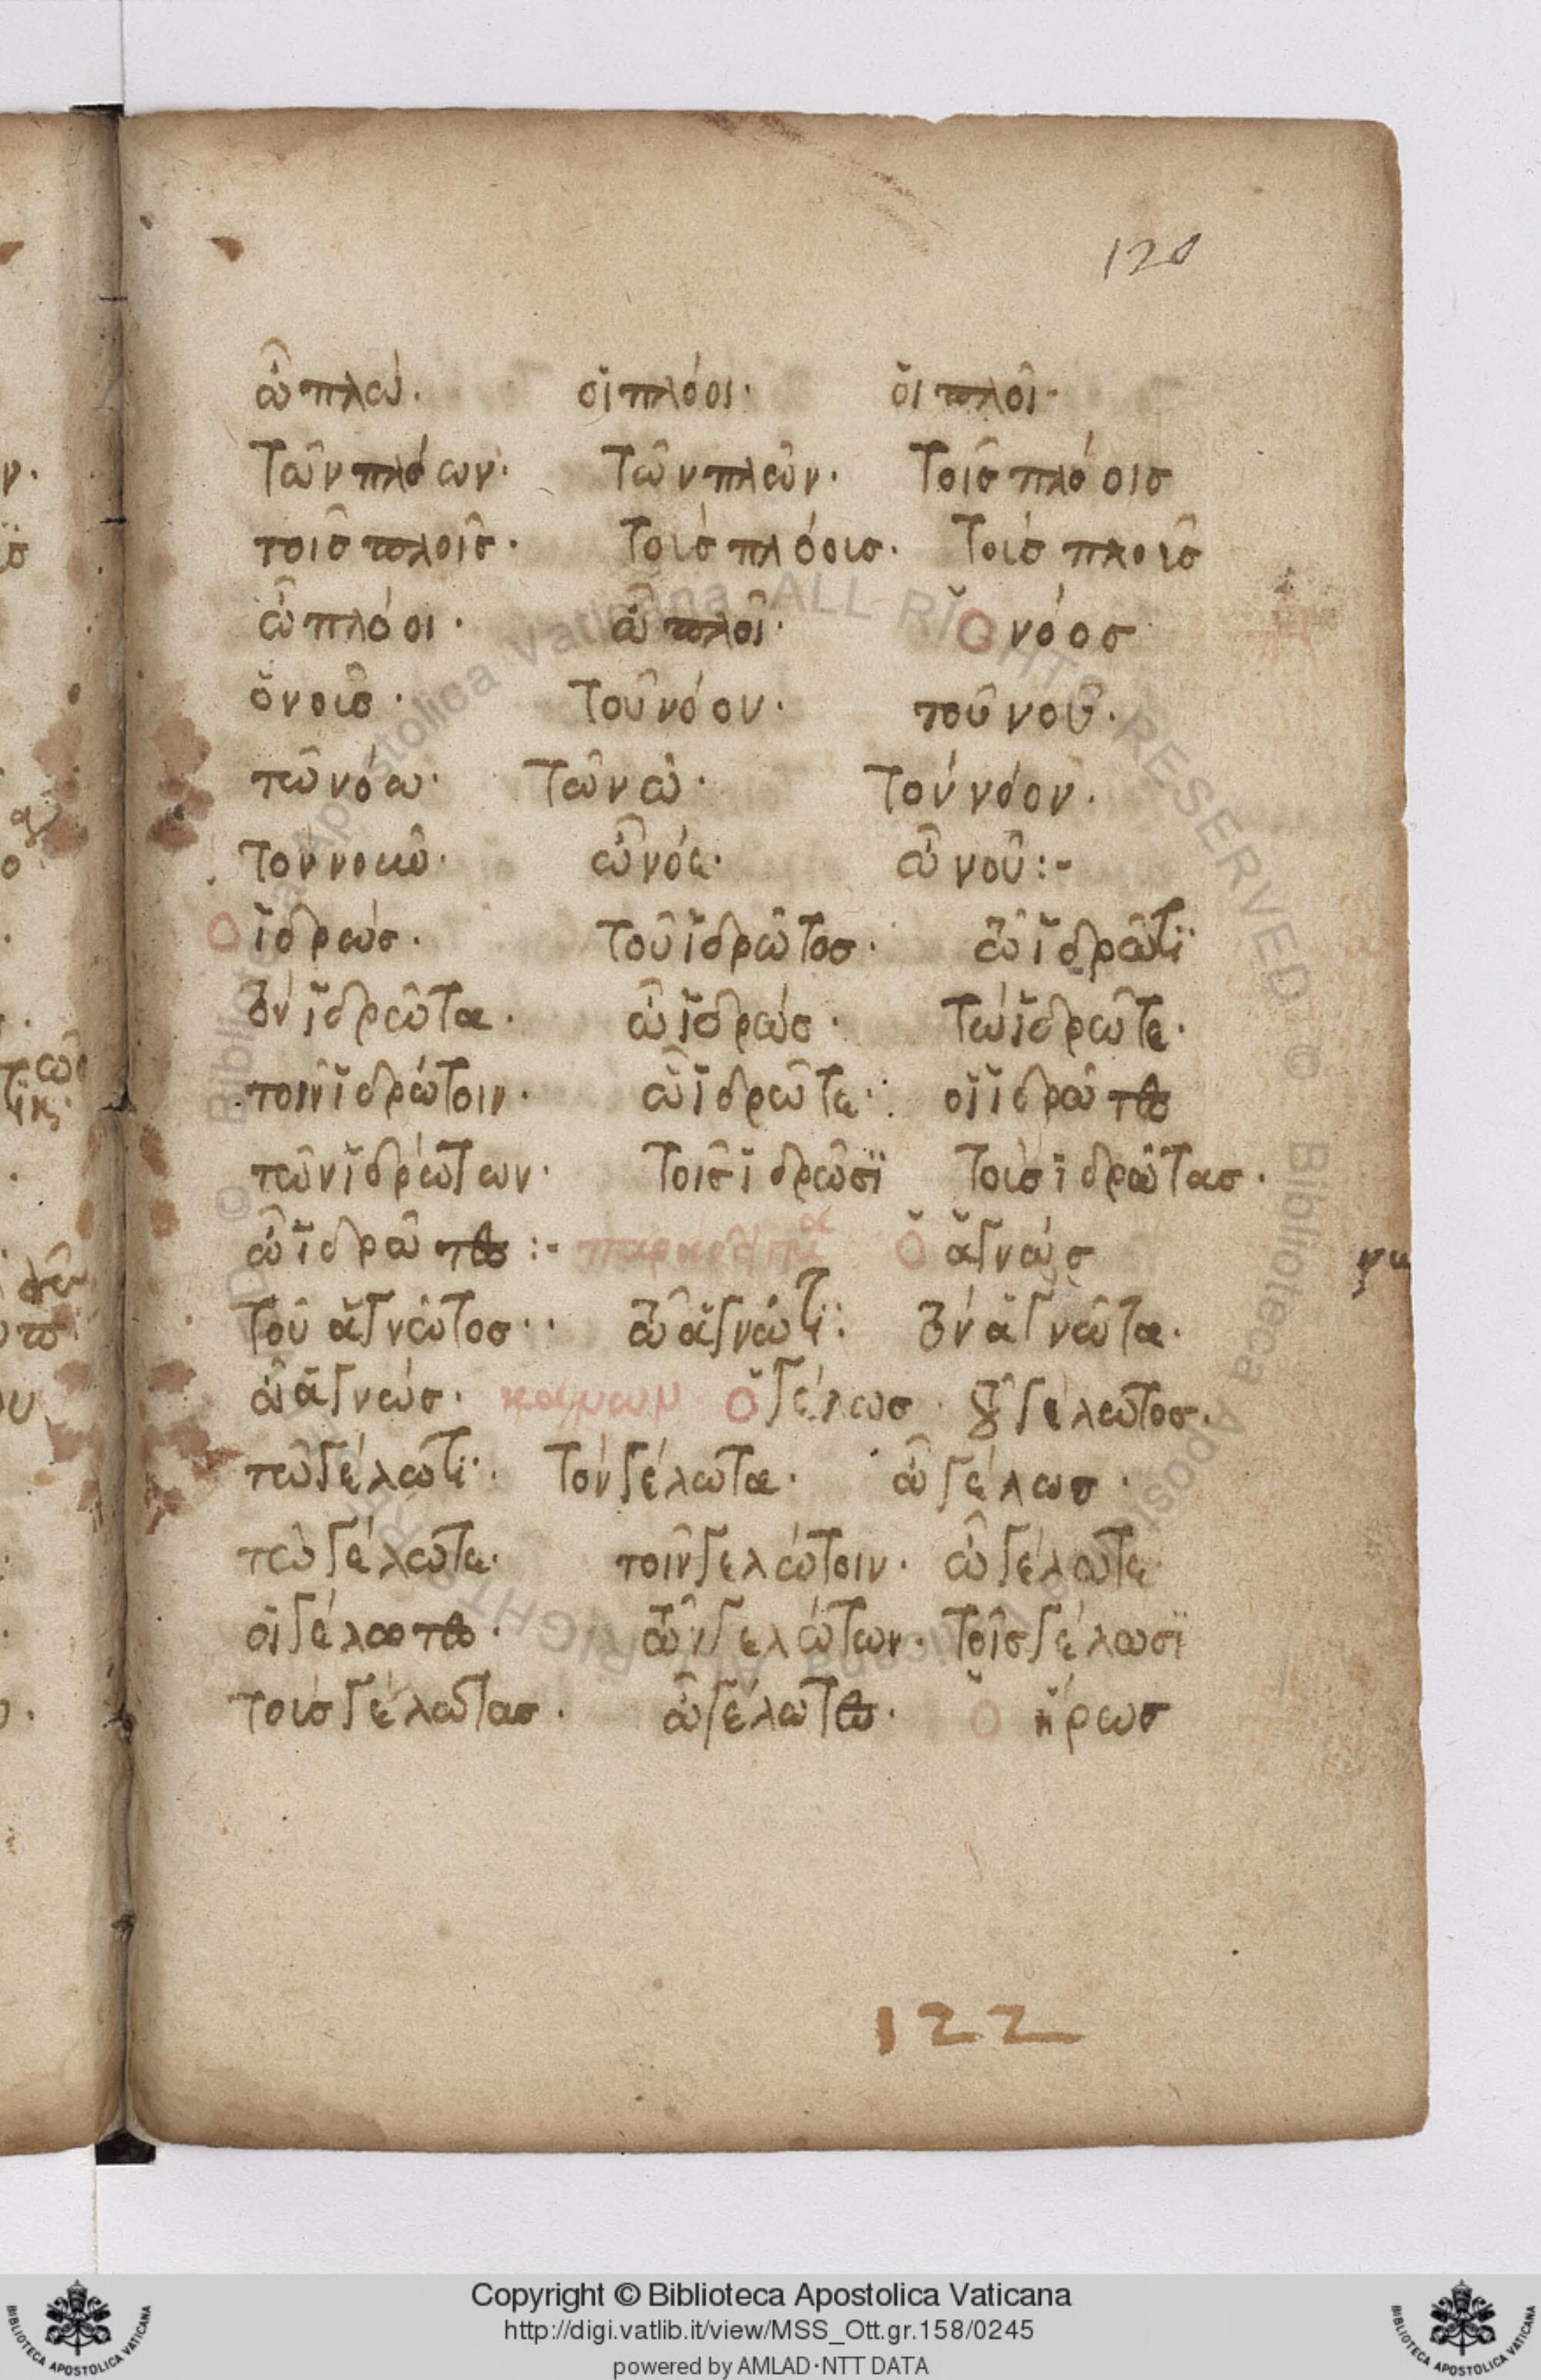 120
ὦ πλώ. οἱ πλόοι. οἱ πλοῖ.
τῶν πλόων. τῶν πλῶν. τοῖσ πλόοισ
τοῖσ πλοῖσ. τοὺσ πλόουσ. τοὺσ πλοῦσ
ὦ πλόοι. ὦ πλοῖ. ὁ νόοσ
ὁ νοῦσ. τοῦ νόου. τοῦ νοῦ.
τῶ νόω. τῶ νῶ. τὸν νόον.
τὸν νοῦν. ὦ νόε. ὦ νοῦ:-
ὁ ἱδρώσ. τοῦ ἱδρῶτοσ. τῶ ἱδρῶτϊ
τὸν ἱδρῶτα. ὦ ἱδρώσ. τὼ ἱδρῶτε.
τοῖν ἱδρώτοιν. ὦ ἱδρῶτε. οἱ ἱδρῶτεσ
τῶν ἱδρώτων. τοῖσ ἱδρῶσϊ τοὺσ ἱδρῶτασ.
ὦ ἱδρῶτεσ:- ὁ ἀγνώσ
τοῦ ἀγνῶτοσ. τῶ ἀγνώτϊ. τὸν ἀγνῶτα.
ὦ ἀγνώσ. ὁ γέλωσ. τοῦ γέλωτοσ.
τῶ γέλωτϊ. τὸν γέλωτα. ὦ γέλωσ.
τὼ γέλωτε. τοῖν γελώτοιν. ὦ γέλωτε
οἱ γέλωτεσ. τῶν γελώτων. τοῖσ γέλωσϊ
τοὺσ γέλωτασ. ὦ γέλωτεσ. ὁ ἥρωσ
122
Copyright © Biblioteca Apostolica Vaticana
http://digi.vatlib.it/view/MSS_Ott.gr.158/0245
powered by AMLAD·NTT DATA